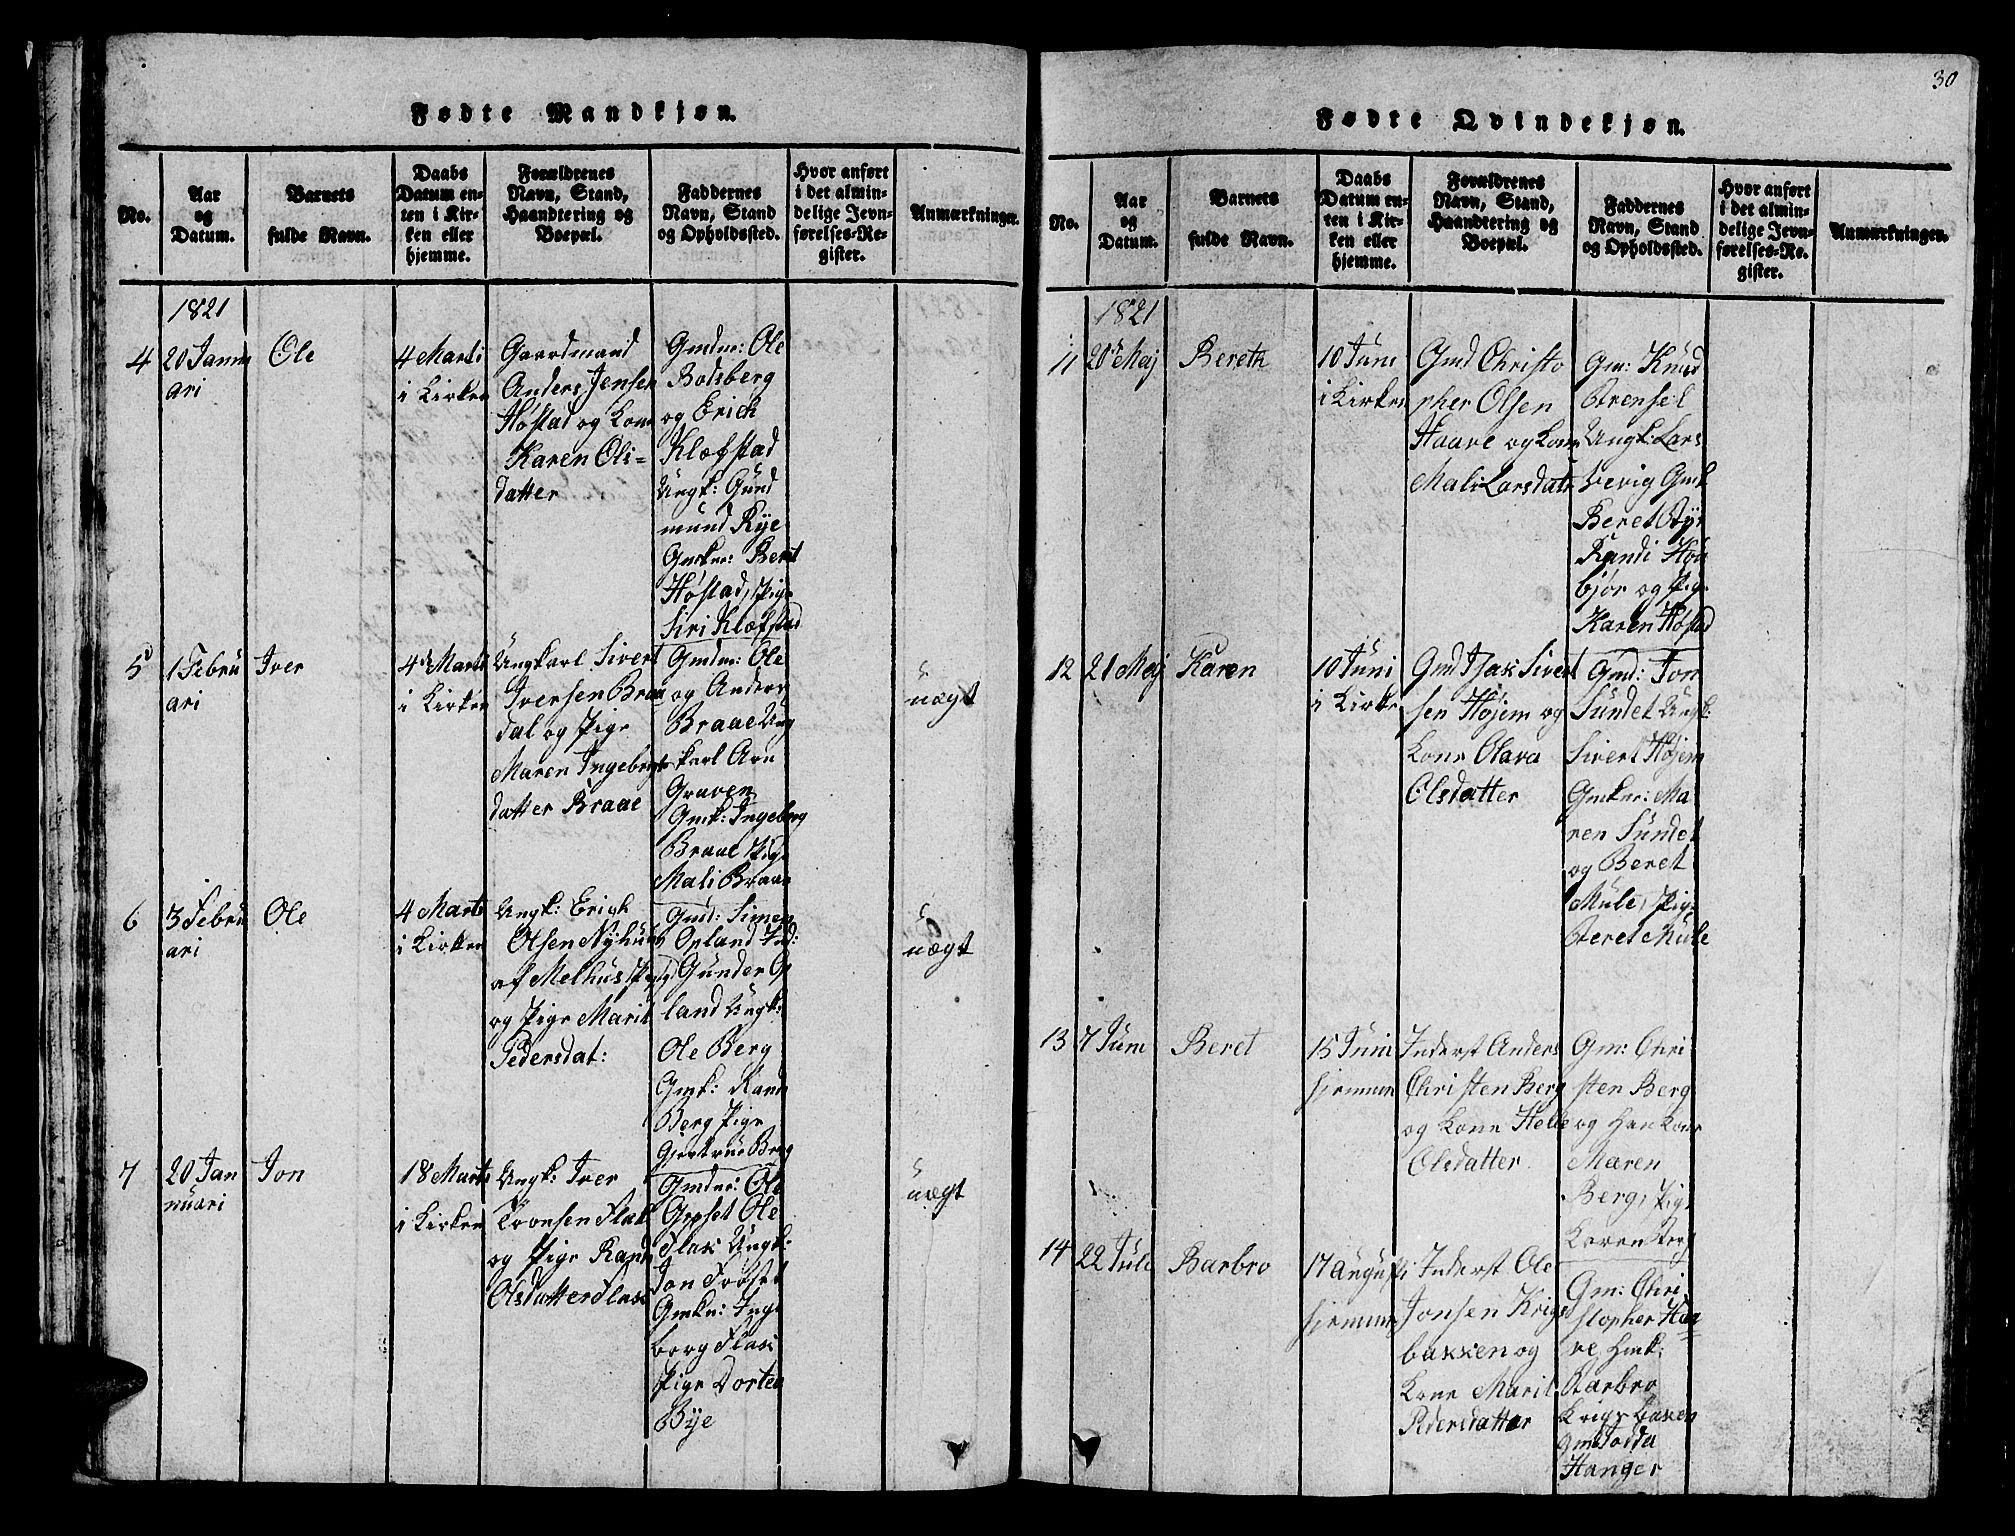 Fødte Mandkjøn.
No.
Aar
og
Datum.
Barnets
fulde Navn.
Daabs
Datum en-
ten i Kir-
ken eller
hjemme.
Forældrenes
Navn, Stand,
Haandtering og
Boepæl.
Faddernes
Navn, Stand
og Opholdssted.
Hvor anført
i det almin-
delige Jevn-
førelses-Re-
gister.
Anmærkninger.
1821
4
20 Janu
ari
Ole
4 Marti
i Kirken
Gaardmand
Anders Jensen
Høstad og Kone
Karen Ols=
datter
Gmdnr: Ole
Bodsberg
og Erick
Klæfstad
Ungk: Gund
mund Rye
Gmknr: Berit
Høstad, Pige
Siri Klæfstad
5
1 Febru
ari
Iver
4de Marti
i Kirken
Ungkarl Sivert
Iversen Braa
dal og Pige
Maren Ingebrigts
datter Braae
Gmdnr: Ole
og Anders
Braae Ung
karl Arn
Graven
Gmk: Ingeborg
Braae Pige
Mali Braae
uægt
6
3 Febru
ari
Ole
4 Marti
i Kirken
Ungk: Erich
Olsen Nyhuus
af Melhus
og Pige Marit
Pedersdat:
Gmd: Simen
Opland Ind:
Gunder Op
land Ungk:
Ole Berg
Gmk: Rand
Berg Pige
Gjertrue Berg
uægt
7
20 Jan
nuari
Jon
18 Marti
i Kirken
Ungk: Iver
Tronsen Flak
og Pige Rand
Olsdatter Flak
Gmdnr: Ole
Gypset Ole
Flak Ungk:
Jon Frøset
Gmkn: Inge
borg Flak
Pige Dorten
Bye
uægt
30
Fødte Qvindekjøn.
No.
Aar
og
Datum.
Barnets
fulde Navn.
Daabs
Datum en-
ten i Kir-
ken eller
hjemme.
Forældrenes
Navn, Stand,
Haandtering og
Boepæl.
Faddernes
Navn, Stand
og Opholdssted.
Hvor anført
i det almin-
delige Jevn-
førelses-Re-
gister.
Anmærkninger.
1821
11
20de Maj
Bereth
10 Juni
i Kirken
Gmd Christo
pher Olsen
Haave og Kone
Mali Larsdatr
Gm: Knud
Brensel
Ungk: Lars
Gmk
Beret
Randi
bjør og Pige
Karen Høstad
12
21 Maj
Karen
10 Juni
i Kirke
Gmd Isak Sivert
sen Højem og
Kone Olava
Olsdatter
Gmd: Jon
Sundet Ungk:
Sivert Højem
Gmknr: Ma
ren Sundet
og Beret
Mule, Pige
Beret Mule
13
7 Juni
Beret
15 Juni
hjemme
Inderst Anders
Christen Berg
og Kone Helle
Olsdatter
Gm: Chri
sten Berg
og Han Kone
Maren
Berg, Pige
Karen Berg
14
22 Juli
Barbro
17 Augusti
hjemme
Inderst Ole
Jonsen Krigs
bakken og
Kone Marit
Pedersdatter
Gm: Chri
stopher Haa=
ve,
Barbro
Krigsbaken
Hanger